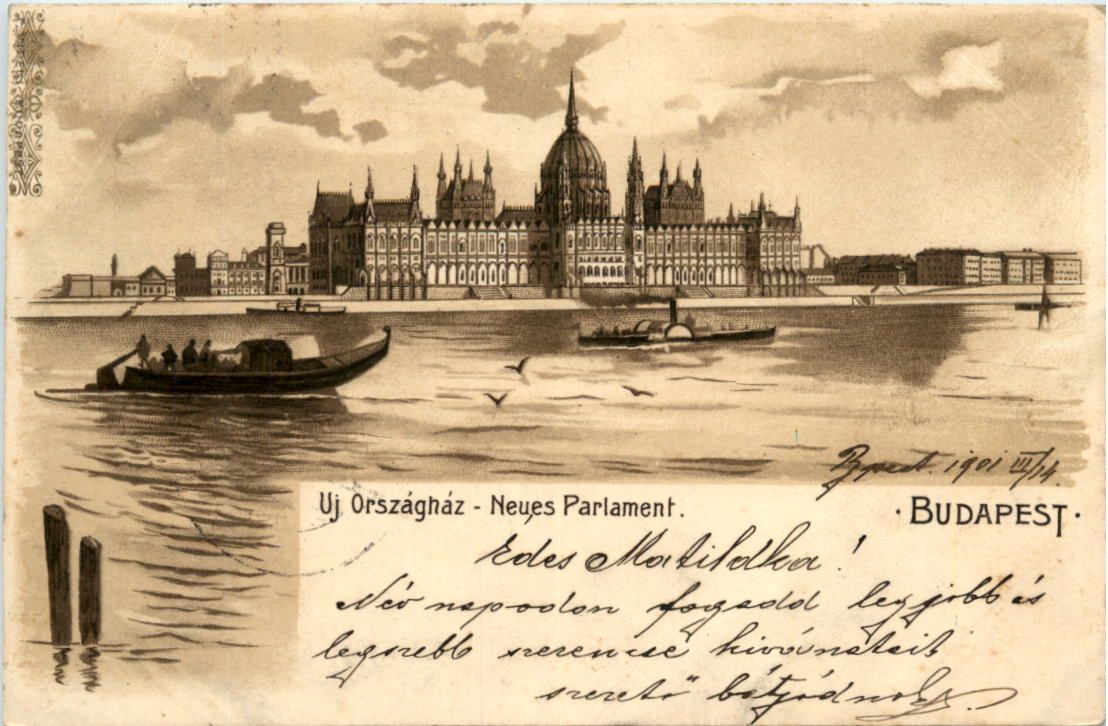 Bpest. 1901 III/14.
Uj Országház - Neues Parlament.
· BUDAPEST ·
Edes Matildka!
Név napodon fogadd leg jobb és
legszebb szerencse kivánatait
szerető bátyádnak